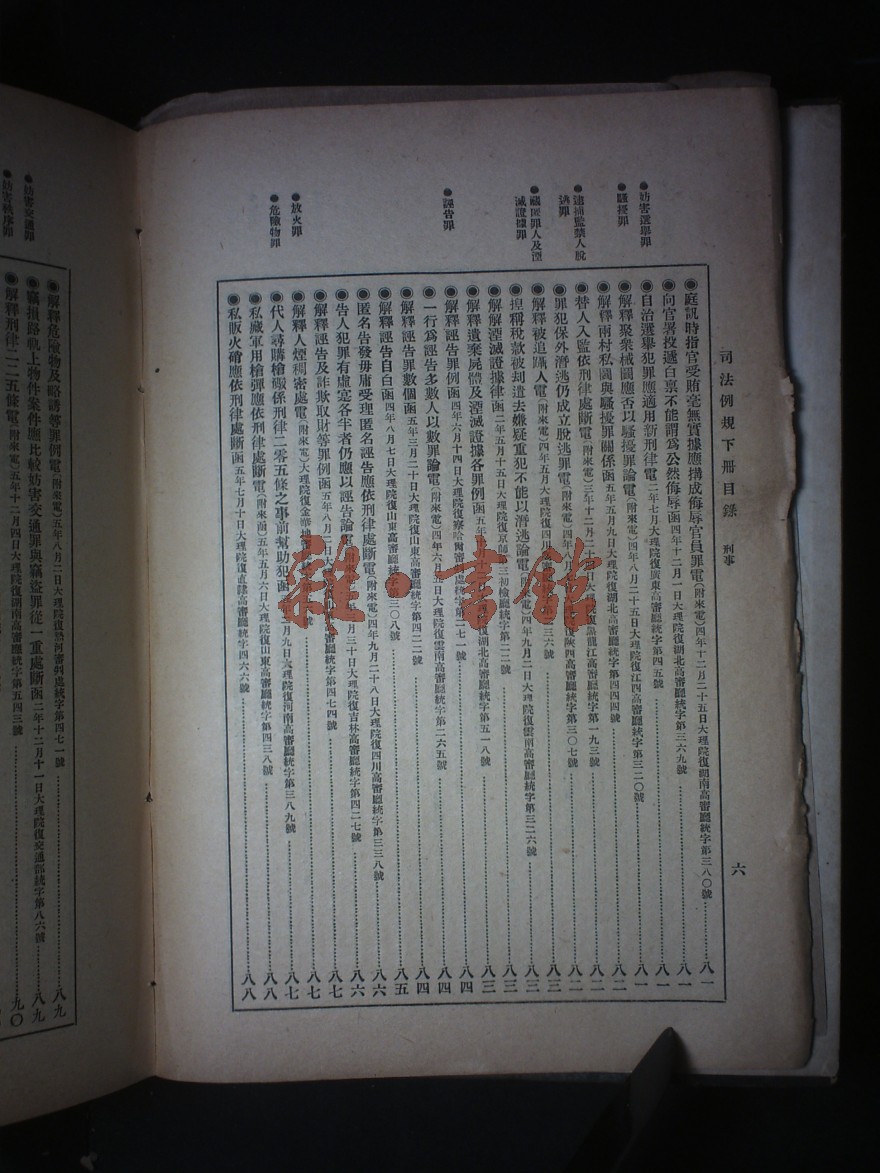 司法例規下冊目錄 刑事 六
●妨害選舉罪
●騷擾罪
●逮捕監禁人脫
逃罪
●藏匿罪人及湮
滅證據罪
●誣告罪
●放火罪
●危險物罪
◉庭訊時指官受賄毫無實據應搆成侮辱官員罪電(附來電)四年十二月二十五日大理院復湖南高審廳統字第三八〇號……八一
◉向官署投遞白禀不能謂爲公然侮辱函四年十二月一日大理院復湖北高審廳統字第三六九號……八一
◉自治選舉犯罪應適用新刑律電二年七月大理院復廣東高審廳統字第四五號……八一
◉解釋聚衆械鬭應否以騷擾罪論電(附來電)四年八月二十五日大理院復江西高審廳統字第三二〇號……八一
◉解釋兩村私鬭與騷擾罪關係函五年五月九日大理院復湖北高審廳統字第四四四號……八二
◉替人入監依刑律處斷電(附來電)三年十二月二十日大理院復黑龍江高審廳統字第一九三號……八二
◉罪犯保外潛逃仍成立脫逃罪電(附來電)四年八月復陝西高審廳統字第三〇七號……八二
◉解釋被追躡人電(附來電)四年五月大理院復四川三六號……八三
◉捏稱稅款被刦遣去嫌疑重犯不能以潛逃論電(附來電)四年九月二日大理院復雲南高審廳統字第三二六號……八三
◉解解湮滅證據律函二年五月十五日大理院復京師三初檢廳統字第二二號……八三
◉解釋遺棄屍體及湮滅證據各罪例函五年大理院復湖北高審廳統字第五一八號……八三
◉解釋誣告罪例函四年六月十四日大理院復察哈爾審處統字第二七一號……八四
◉一行爲誣告多數人以數罪論電(附來電)四年六月日大理院復雲南高審廳統字第二六五號……八四
◉解釋誣告罪數個函五年三月二十日大理院復山東高審廳統字第四二二號……八四
◉解釋誣告自白函四年八月七日大理院復山東高審廳統字第三〇八號……八五
◉匿名告發毋庸受理匿名誣告應依刑律處斷電(附來電)四年九月二十八日大理院復四川高審廳統字第三三八號……八六
◉告人犯罪有虛宻各半者仍應以誣告論月三十日大理院復吉林高審廳統字第四二七號……八六
◉解釋誣告及詐欺取財等罪例函五年八月二日大審廳統字第四七四號……八七
◉解釋人烟稠密處電(附來電)大理院復金華號……八七
◉代人尋購槍緞係刑律二零五條之事前幫助犯函二月九日大理院復河南高審廳統字第三八九號……八七
◉私藏軍用槍彈應依刑律處斷電(附來函)五年五月六日大理院復山東高審廳統字第四三八號……八八
◉私販火硝應依刑律處斷函五年七月十日大理院復直隸高審廳統字第四六六號……八八
●妨害交通罪
●妨害秩序罪
◉解釋危險物及略誘等罪例電(附來電)五年八月二日大理院復熱河審判處統字第四七一號……八九
◉竊損路軌上物件案件應比較妨害交通罪與竊盜罪從一重處斷函二年十二月十一日大理院復交通部統字第八六號……八九
◉解釋刑律二二五條電(附來電)五年十二月四日大理院復湖南高審廳統字第五四三號……九〇
雜·書館